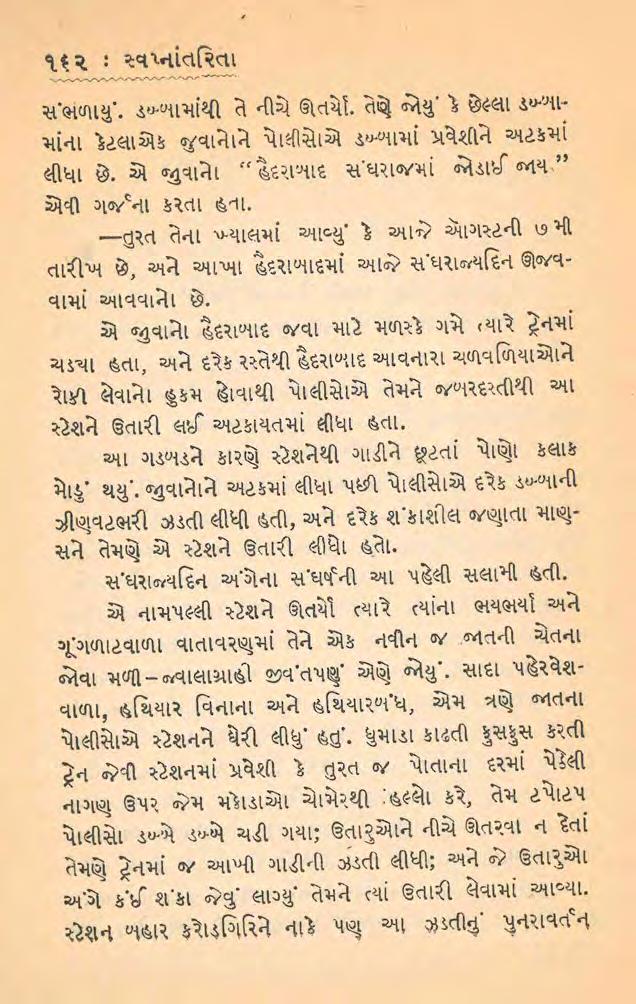 ૧૬૨ : સ્વપ્નાંતરિતા
સંભળાયું. ડબ્બામાંથી તે નીચે ઊતર્યો. તેણે જોયું કે છેલ્લા ડબ્બા-
માંના કેટલાએક જુવાનોને પોલીસોએ ડબ્બામાં પ્રવેશીને અટકમાં
લીધા છે. એ જુવાનો “હૈદરાબાદ સંઘરાજમાં જોડાઈ જાય.”
એવી ગર્જના કરતા હતા.
—તુરત તેના ખ્યાલમાં આવ્યું કે આજે ઑગસ્ટની ૭ મી
તારીખ છે, અને આખા હૈદરાબાદમાં આજે સંઘરાજ્યદિન ઊજવ-
વામાં આવવાનો છે.
એ જુવાનો હૈદરાબાદ જવા માટે મળસ્કે ગમે ત્યારે ટ્રેનમાં
ચડયા હતા, અને દરેક રસ્તેથી હૈદરાબાદ આવનારા ચળવળિયાઓને
રોકી લેવાનો હુકમ હોવાથી પોલીસોએ તેમને જબરદસ્તીથી આ
સ્ટેશને ઉતારી લઈ અટકાયતમાં લીધા હતા.
આ ગડબડને કારણે સ્ટેશનેથી ગાડીને છૂટતાં પોણો કલાક
મોડું થયું. જુવાનોને અટકમાં લીધા પછી પોલીસોએ દરેક ડબ્બાની
ઝીણવટભરી ઝડતી લીધી હતી, અને દરેક શંકાશીલ જણાતા માણ-
સને તેમણે એ સ્ટેશને ઉતારી લીધો હતો.
સંઘરાજ્યદિન અંગેના સંઘર્ષની આ પહેલી સલામી હતી.
એ નામપલ્લી સ્ટેશને ઊતર્યો ત્યારે ત્યાંના ભયભર્યા અને
ગૂંગળાટવાળા વાતાવરણમાં તેને એક નવીન જ જાતની ચેતના
જોવા મળી – જ્વાલાગ્રાહી જીવંતપણું એણે જોયું. સાદા પહેરવેશ-
વાળા, હથિયાર વિનાના અને હથિયારબંધ, એમ ત્રણે જાતના
પોલીસોએ સ્ટેશનને ઘેરી લીધું હતું. ધુમાડા કાઢતી ફુસફુસ કરતી
ટ્રેન જેવી સ્ટેશનમાં પ્રવેશી કે તુરત જ પોતાના દરમાં પેઠેલી
નાગણ ઉપર જેમ મકોડાઓ ચોમેરથી હલ્લો કરે, તેમ ટપોટપ
પોલીસો ડબ્બે ડબ્બે ચડી ગયા; ઉતારુઓને નીચે ઊતરવા ન દેતાં
તેમણે ટ્રેનમાં જ આખી ગાડીની ઝડતી લીધી; અને જે ઉતારુઓ
અંગે કંઈ શંકા જેવું લાગ્યું તેમને ત્યાં ઉતારી લેવામાં આવ્યા.
સ્ટેશન બહાર કરોડગિરિને નાકે પણ આ ઝડતીનું પુનરાવર્તન